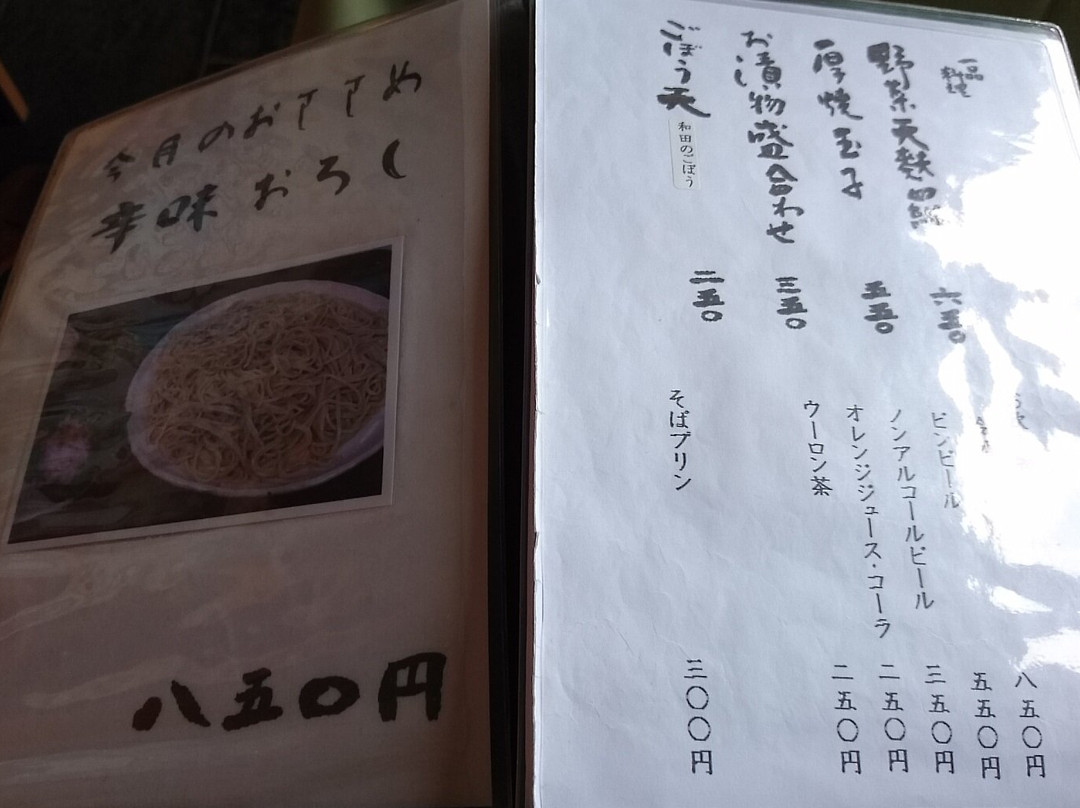 今月のおすすめ
辛味おろし
八五〇円
一品料理
野菜天麩羅
六五〇
厚焼玉子
五五〇
お漬物盛合わせ
三五〇
ごぼう天
和田のごぼう
二五〇
八五〇円
ビンビール
五五〇円
ノンアルコールビール
三五〇円
オレンジジュース・コーラ
二五〇円
ウーロン茶
二五〇円
そばプリン
三〇〇円